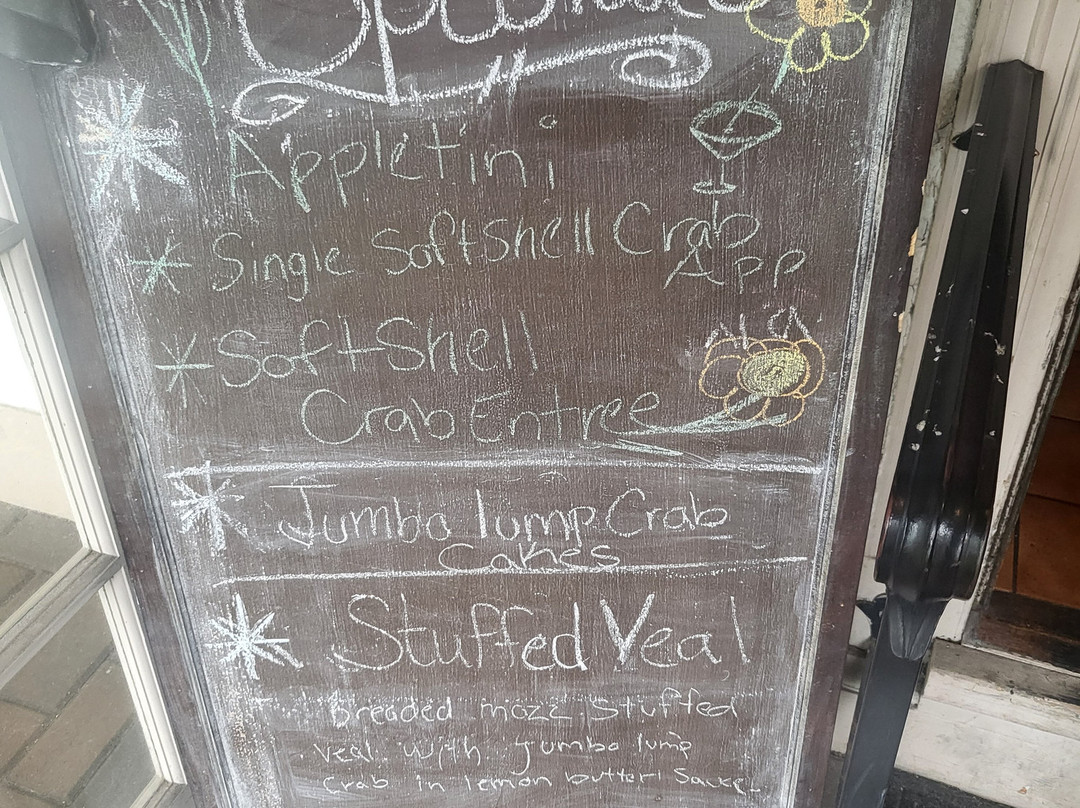 Appletini
Single Softshell Crab
App
Soft-Shell
Crab Entree
Jumbo lump Crab
Cakes
Stuffed Veal
breaded mozz stuffed
veal with jumbo lump
crab in lemon butter